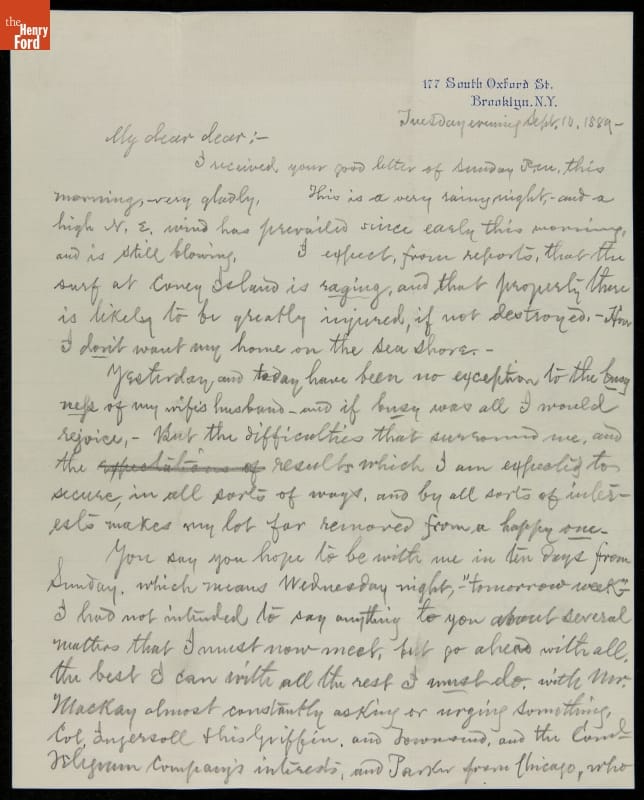 the
Henry
Ford
177 South Oxford St.
Brooklyn, N.Y.
Tuesday evening Sept. 10, 1889-
My dear dear:-
I received, your good letter of Sunday P.M., this
morning,-very gladly. This is a very rainy night,-and a
high N. E. wind has prevailed since early this morning,
and is still blowing. I expect, from reports, that the
surf at Coney Island is raging, and that property there
is likely to be greatly injured, if not destroyed.- How
I don't want my home on the sea shore.-
Yesterday and today have been no exception to the busy
ness of my wife's husband-and if busy was all I would
rejoice,- But the difficulties that surround me, and
the expectations of results which I am expected to
secure, in all sorts of ways, and by all sorts of inter-
ests makes my lot far removed from a happy one.
You say you hope to be with me in ten days from
Sunday, which means Wednesday night,-"tomorrow week"-
I had not intended to say anything to you about several
matters that I must now meet, but go ahead with all,
the best I can with all the rest I must do, with Mr.
Mackay almost constantly asking or urging something,
Col. Ingersoll & his Griffin, and Townsend, and the Coml
Telegram Company's interests, and Parker from Chicago, who